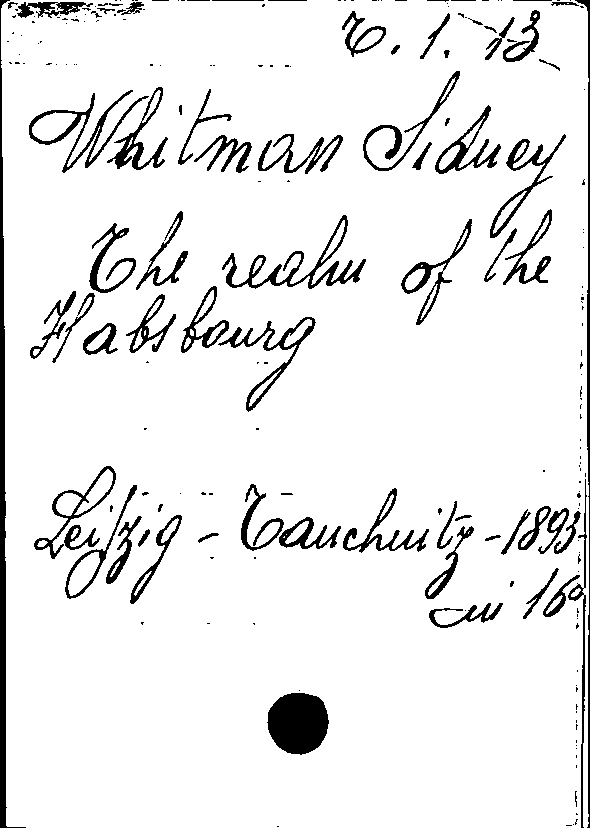 T. 1. 13
Whitman Sidney
The realm of the
Habsbourg
Leipzig - Tauchnitz - 1893 -
in 16º